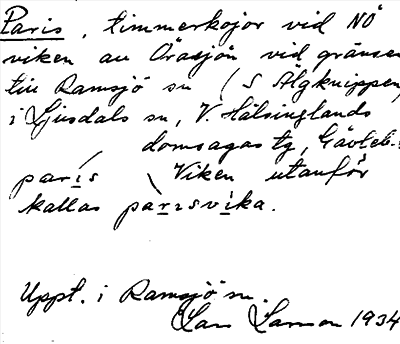 Paris, timmerkojor vid NÖ
viken av Orasjön vid gränsen
till Ramsjö sn (S Älgknippen)
i Ljusdals sn, V. Hälsinglands
domsagas tg, Gävleb.
paris Viken utanför
kallas parisvika.
Uppt. i Ramsjö sn.
Lars Larson 1934